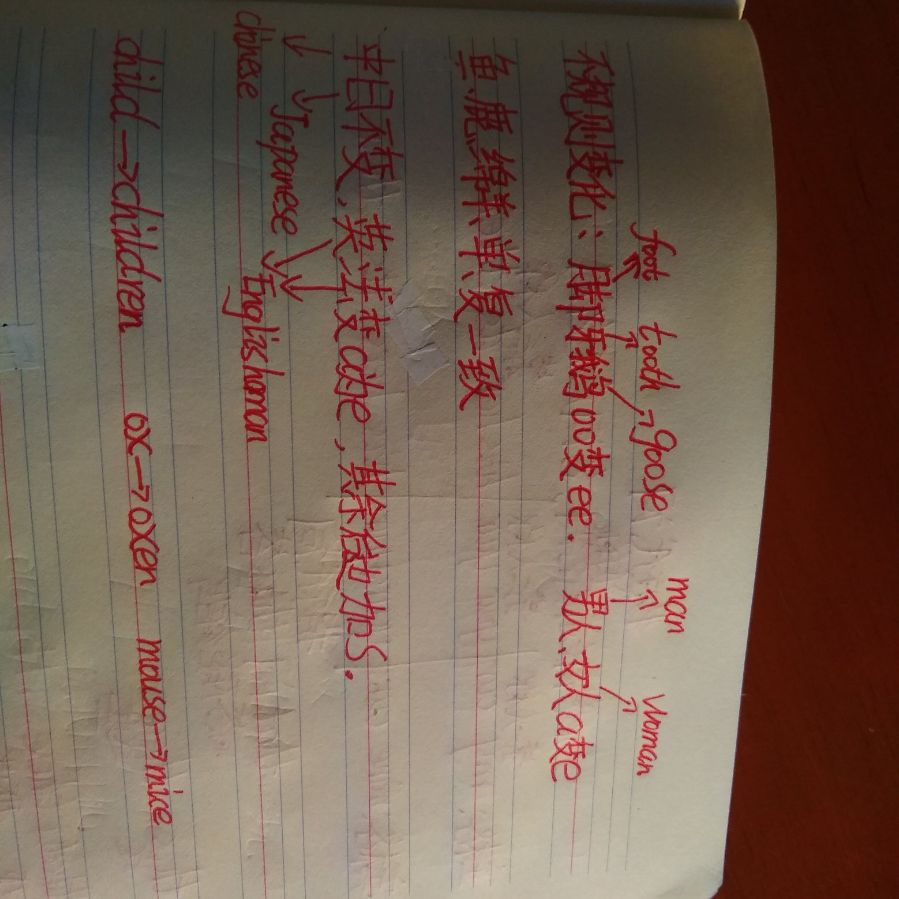 foot tooth goose man woman
不规则变化：脚牙鹅oo变ee. 男人,女人a变e
鱼鹿绵羊单复一致
中日不变,英法变a为e,其余in加s.
Japanese
chinese Englishman
child→children ox→oxen mouse→mice